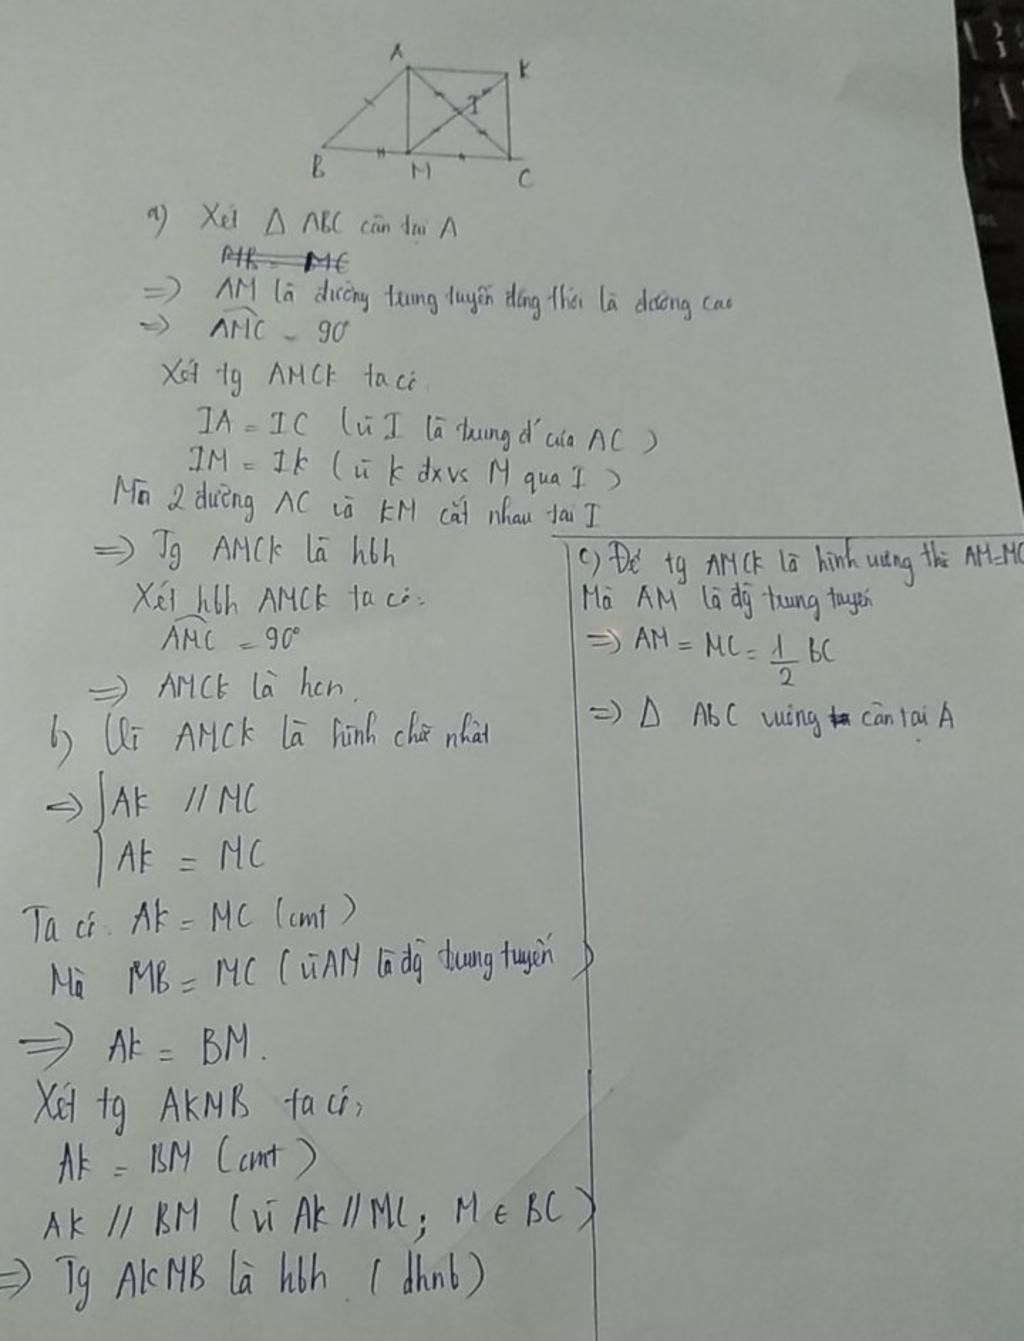 A
K
I
B
M
C
a) Xét Δ ABC cân tại A
=> AM là đường trung tuyến đồng thời là đường cao
=> AMC = 90°
Xét tg AMCK ta có
IA = IC (vì I là trung đ' của AC)
IM = IK (vì K đx vs M qua I)
Mà 2 đường AC và KM cắt nhau tại I
=> Tg AMCK là hbh
Xét hbh AMCK ta có:
AMC = 90°
=> AMCK là hcn.
b) Vì AMCK là hình chữ nhật
=> { AK // MC
AK = MC
Ta có: AK = MC (cmt)
Mà MB = MC (vì AM là đg trung tuyến)
=> AK = BM.
Xét tg AKMB ta có:
AK = BM (cmt)
AK // BM (vì AK // MC; M ∈ BC)
=> Tg AKMB là hbh (dhnb)
c) Để tg AMCK là hình vuông thì AM=MC
Mà AM là đg trung tuyến
=> AM = MC = 1/2 BC
=> Δ ABC vuông cân tại A